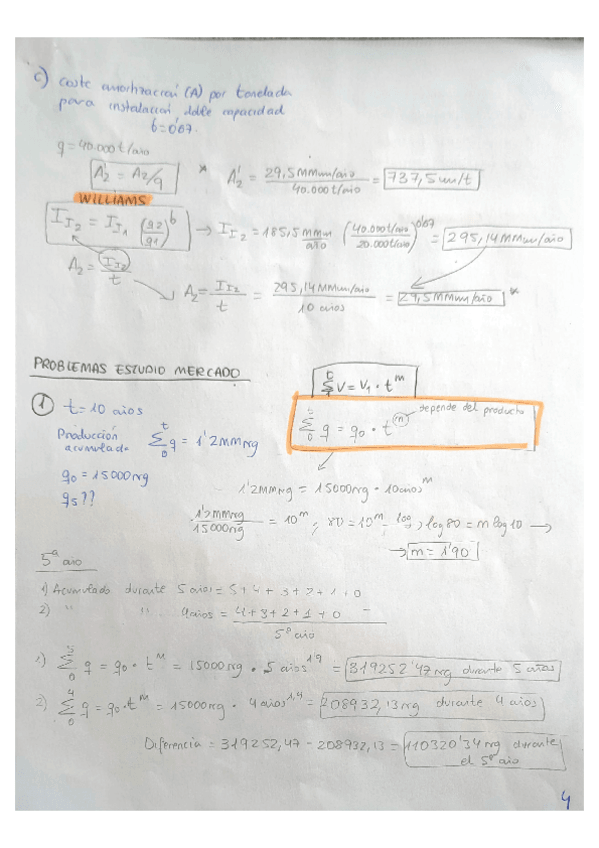 c) coste amortización (A) por tonelada
para instalación doble capacidad
b=0'67.
q = 40.000 t/año
A'₂ = A₂/q * A'₂ = 29,5MMum/año / 40.000 t/año = 737,5 um/t
WILLIAMS
I_I₂ = I_I₁ (q₂/q₁)^b → I_I₂ = 185,5 MMum/año (40.000t/año / 20.000t/año)^0'67 = 295,14MMum/año
A₂ = I_I₂/t → A₂ = I_I₂/t = 295,14MMum/año / 10 años = 29,5MMum/año *
PROBLEMAS ESTUDIO MERCADO
Σ V = V₁ · t^m
1 t = 10 años
Σ₀^t q = q₀ · t^m depende del producto
Producción acumulada Σ₀^t q = 1'2MMkg
q₀ = 15000kg
q₅??
1'2MMkg = 15000kg · 10años^m
1'2MMkg / 15000kg = 10^m ; 80 = 10^m log ; log80 = m log10 →
→ m = 1'90
5º año
1) Acumulado durante 5 años = 5+4+3+2+1+0
2) " " 4 años = 4+3+2+1+0 -
5º año
1) Σ₀^5 q = q₀ · t^m = 15000kg · 5 años^1'9 = 319252'47kg durante 5 años
2) Σ₀^4 q = q₀·t^m = 15000kg · 4 años^1,9 = 208932,13kg durante 4 años
Diferencia = 319252,47 - 208932,13 = 110320'34kg durante
el 5º año
4